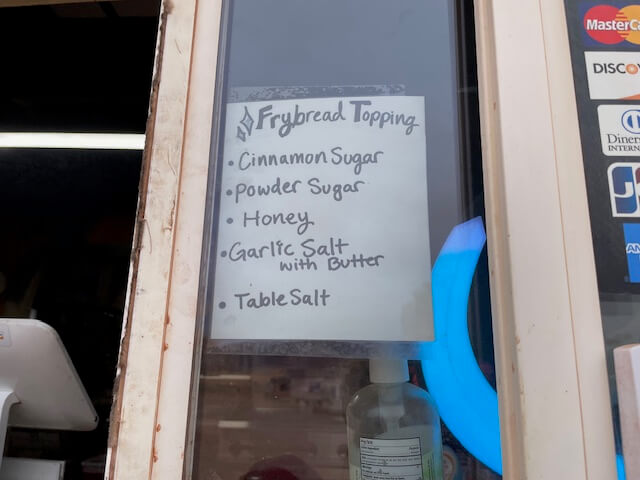 Frybread Topping
• Cinnamon Sugar
• Powder Sugar
• Honey
• Garlic Salt
with Butter
• Table Salt
MasterCa
DISCO
Diners
INTERN
AM